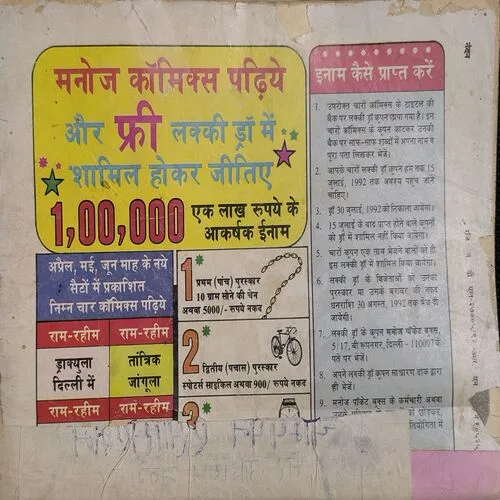 मनोज कॉमिक्स पढ़िये
और फ्री लक्की ड्रॉ में
शामिल होकर जीतिए
1,00,000 एक लाख रूपये के
आकर्षक ईनाम
अप्रैल, मई, जून माह के नये
सैटों में प्रकाशित
निम्न चार कॉमिक्स पढ़िये
राम-रहीम
राम-रहीम
ड्राक्युला
दिल्ली में
तांत्रिक
जांगूला
राम-रहीम
राम-रहीम
1 प्रथम (पांच) पुरस्कार
10 ग्राम सोने की चेन
अथवा 5000/- रुपये नकद
2 द्वितीय (पचास) पुरस्कार
स्पोर्टस साइकिल अथवा 900/ रुपये नकद
3
इनाम कैसे प्राप्त करें
1. उपरोक्त चारों कॉमिक्स के टाइटल की
बैक पर लक्की ड्रॉ कूपन छापा गया है। इन
चारों कॉमिक्स के कूपन काटकर उनकी
बैक पर साफ-साफ शब्दों में अपना नाम व
पूरा पता लिखकर भेजें।
2. आपके चारों लक्की ड्रॉ कूपन हम तक 15
जुलाई, 1992 तक अवश्य पहुंच जाने
चाहिए।
3. ड्रॉ 30 जुलाई, 1992 को निकाला जायेगा।
4. 15 जुलाई के बाद प्राप्त होने वाले कूपनों
को ड्रॉ में शामिल नहीं किया जायेगा।
5. चारों कूपन एक साथ भेजने वालों को ही
इस लक्की ड्रॉ में शामिल किया जायेगा।
6. लक्की ड्रॉ के विजेताओं को उनका
पुरस्कार या उसके बराबर की नकद
धनराशि 30 अगस्त, 1992 तक भेज दी
जायेगी।
7. लक्की ड्रॉ के कूपन मनोज पॉकेट बुक्स,
5/17, बी रूपनगर, दिल्ली - 110007 के
पते पर भेजें।
8. अपने लक्की ड्रॉ कूपन साधारण डाक द्वारा
ही भेजें।
9. मनोज पॉकेट बुक्स के कर्मचारी अथवा